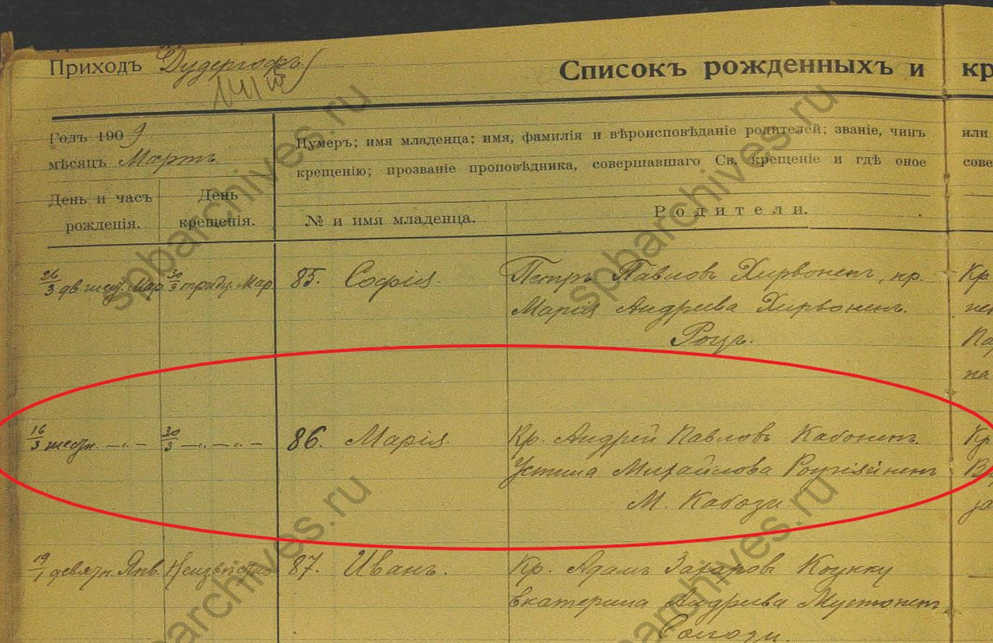 Приходъ Дудергофъ
Списокъ рожденныхъ и кр
Годъ 1909
мѣсяцъ Мартъ
Нумеръ; имя младенца; имя, фамилія и вѣроисповѣданіе родителей; званіе, чинъ или
крещенію; прозваніе проповѣдника, совершавшаго Св. крещеніе и гдѣ оное сове
День и часъ рожденія.
День крещенія.
№ и имя младенца.
Родители.
26/3 Мар 30/3 Мар 85. Софія Петръ Павловъ Хирвоненъ, кр. Кр.
Марія Андреева Хирвонен.
16/3 шестн. 30/3 86. Марія Кр. Андрей Павловъ Кабоненъ
Устина Михайлова
М. Кабози
19/1 девятн. Янв. Неизвѣстно 87. Иванъ. Кр. Адамъ Захаровъ Коукку
Екатерина Андреева Мустонен
spbarchives.ru
spbarchives.ru
spbarchives.ru
spbarchives.ru